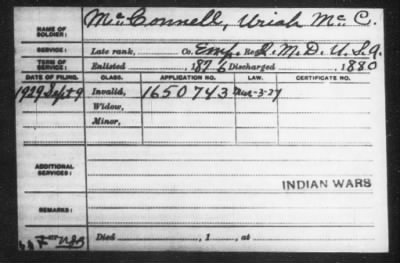 NAME OF SOLDIER: McConnell, Uriah Mc C.
SERVICE: Late rank, Co. Reg't Q. M. D. U.S.A.
TERM OF SERVICE: Enlisted , 1876 Discharged , 1880
DATE OF FILING. CLASS. APPLICATION NO. LAW. CERTIFICATE NO.
1929 Sept 9 Invalid, 1650743 Mar-3-27
Widow,
Minor,
ADDITIONAL SERVICES:
INDIAN WARS
REMARKS:
Died , 1 , at